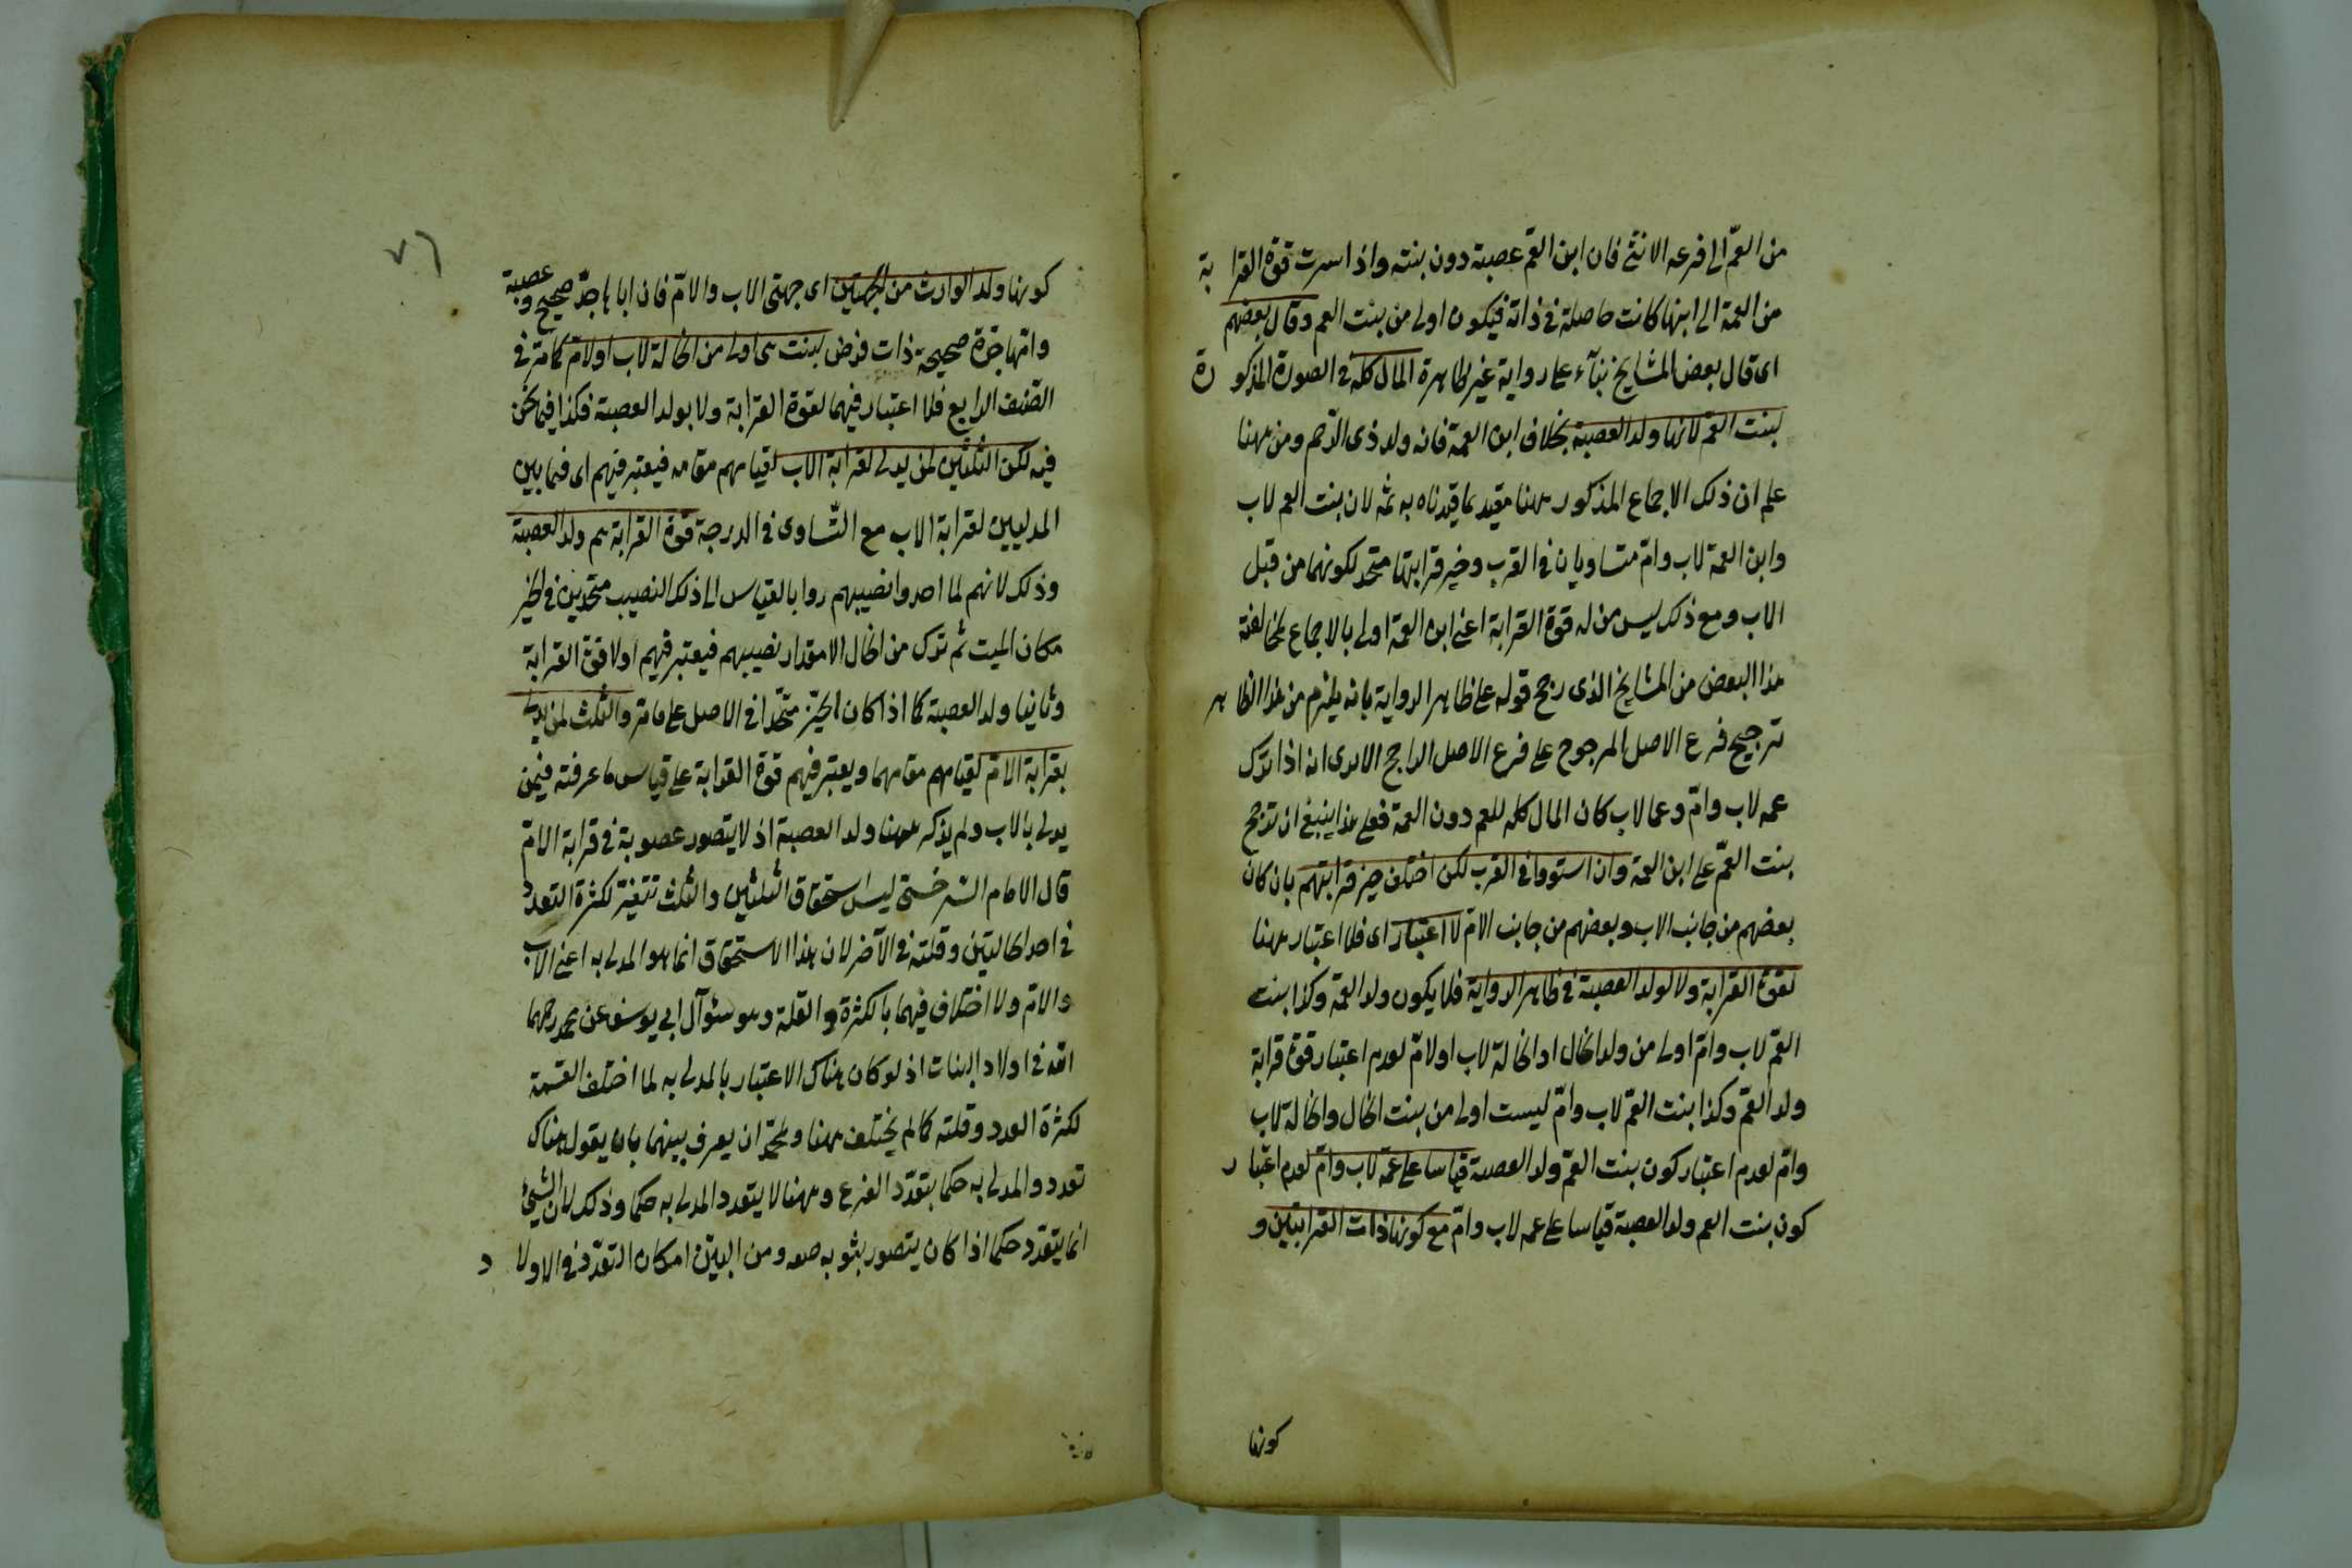 من العمّ الى فرعه الانثى فان ابن العمّ عصبة دون بنته واذا اسرت قوة القرابة
من العمة الى ابنها كانت حاصلة فى ذاته فيكون اولى من بنت العم وقال بعضهم
اى قال بعض المشايخ بنآء على رواية غير ظاهرة المال كله فى الصورة المذكورة
لبنت العم لانها ولد العصبة بخلاف ابن العمة فانه ولد ذى الرّحم ومن ههنا
علم ان ذلك الاجماع المذكور ههنا مقيد بما قيدناه به ثمه لان بنت العم لاب
وابن العمة لاب وامّ متساويان فى القرب وحيز قرابتها متحد لكونهما من قبل
الاب ومع ذلك ليس من له قوة القرابة اعنى ابن العمة اولى بالاجماع لمخالفة
هذا البعض من المشايخ الذى رجح قوله على ظاهر الرواية بانه يلزم من هذا الظاهر
ترجيح فرع الاصل المرجوح على فرع الاصل الراجح الايرى انه اذا ترك
عمه لاب وامّ وعما لاب كان المال كله للعم دون العمة فعلى هذا ينبغى ان ترجح
بنت العمّ على ابن العمة وان استووا فى القرب لكن اختلف حيز قرابتهم بان كان
بعضهم من جانب الاب وبعضهم من جانب الامّ لا اعتبار اى فلا اعتبار ههنا
لقوة القرابة ولا لولد العصبة فى ظاهر الرواية فلا يكون ولد العمّة وكذا بنت
العمّ لاب وامّ اولى من ولد الخال او الخالة لاب اولامّ لعدم اعتبار قوة قرابة
ولد العمّ وكذا بنت العمّ لاب وامّ ليست اولى من بنت الخال والخالة لاب
وامّ لعدم اعتبار كون بنت العمّ ولد العصبة قياسا على عمّة لاب وامّ لعدم اعتبار
كون بنت العم ولد العصبة قياسا على عمه لاب وامّ مع كونها ذات القرابتين و
كونها
٧٦
كونها ولد الوارث من الجهتين اى جهتى الاب والامّ فان اباها جدّ صحيح وعصبة
وامّها جدّة صحيحة ذات فرض ليست هى اولى من الخالة لاب اولامّ كما مرّ فى
الصّنف الرابع فلا اعتبار فيهما لقوة القرابة ولا بولد العصبة فكذا فيما نحن
فيه لكن الثلثين لمن يدلى لقرابة الاب لقيامهم مقامه فيعتبر فيهم اى فيما بين
المدليين لقرابة الاب مع التّساوى فى الدرجة قوة القرابة ثم ولد العصبة
وذلك لانهم لما اخذوا نصيبهم بالقياس الى ذلك النصيب متحدين فى الحيز
مكان الميت ثم ترك من المال الامقدار نصيبهم فيعتبر فيهم اولا قوة القرابة
وثانيا ولد العصبة كما اذا كان الحيّز متحدا فى الاصل على ما مرّ والثلث لمن يدلى
بقرابة الامّ لقيامهم مقامهما ويعتبر فيهم قوة القرابة على قياس ما عرفته فيمن
يدلى بالاب ولم يذكر ههنا ولد العصبة اذ لا يتصور عصوبة فى قرابة الامّ
قال الامام السّرخسىّ ليس استحقاق الثلثين والثلث تتغيّر لكثرة التعدد
فى احد الحالتين وقلته فى الآخر لان هذا الاستحقاق انما هو المدلى به اعنى الاب
والامّ ولا اختلاف فيهما بالكثرة والقلة وهو سئوآل ابى يوسف عن محمد رحمهما
الله فى اولاد البنات اذ لو كان هناك الاعتبار بالمدلى به لما اختلف القسمة
لكثرة العدد وقلته كما لم يختلف ههنا ولمحمد ان يفرق بينهما بان يقول هناك
تعدد والمدلى به حكما بتعدّد الفرع وههنا لا يتعدد المدلى به حكما وذلك لان الشىء
انما يتعدّد حكما اذا كان يتصور ثبوته ومن البيّن امكان التعدّد فى الاولاد